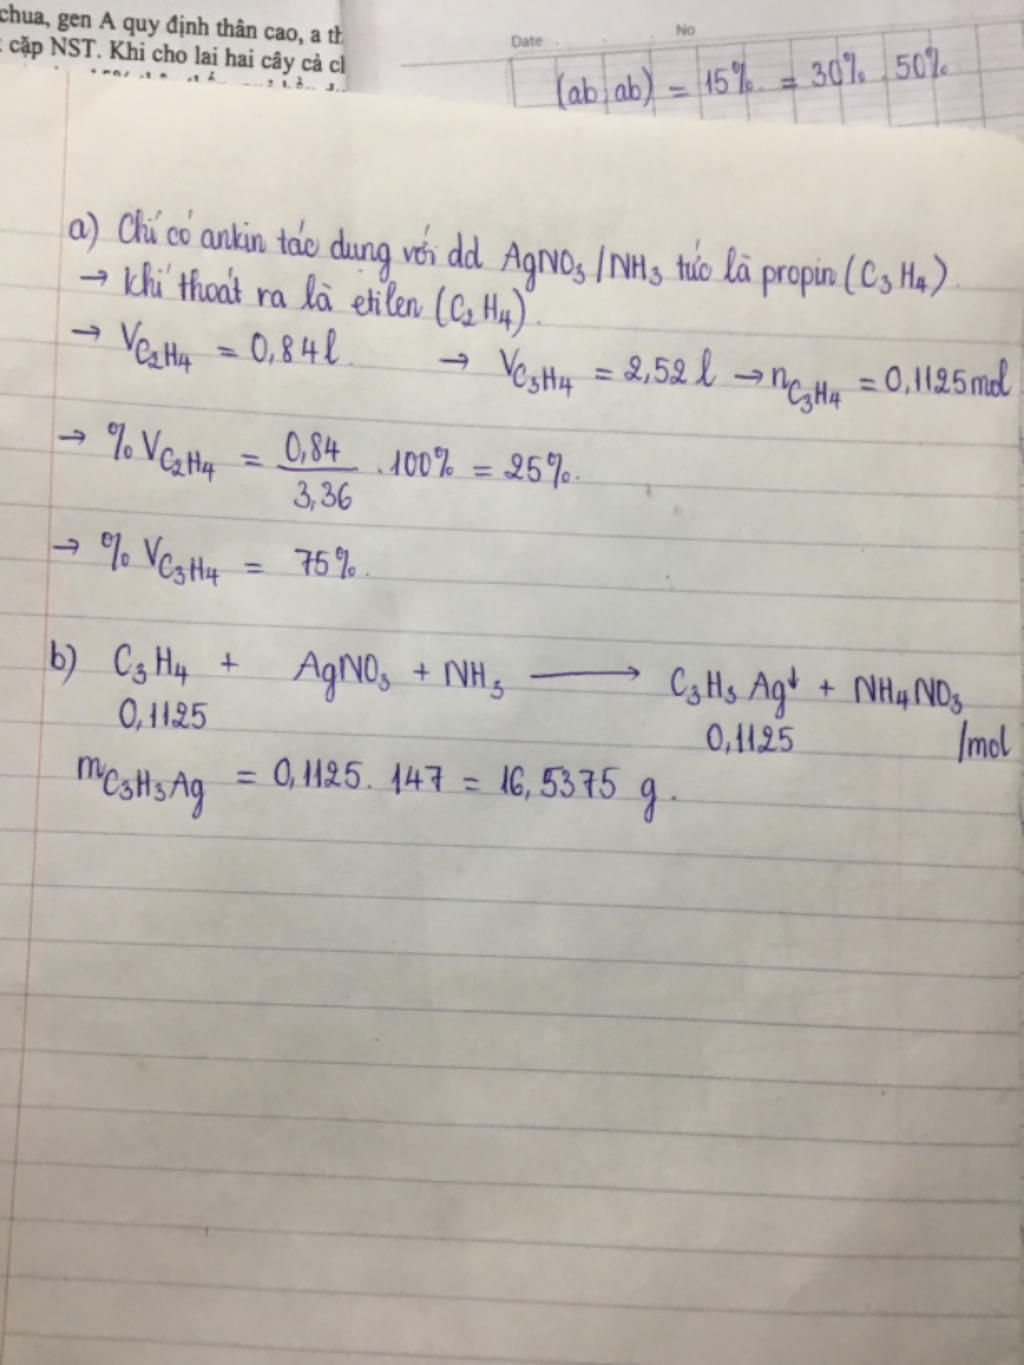 chua, gen A quy định thân cao, a th
cặp NST. Khi cho lai hai cây cà ch
Date No
(ab ab) = 15% = 30% . 50%
a) Chỉ có ankin tác dụng với dd AgNO3 / NH3 tức là propin (C3H4).
→ khí thoát ra là etilen (C2H4).
→ VC2H4 = 0,84 l. → VC3H4 = 2,52 l → nC3H4 = 0,1125 mol
→ % VC2H4 = 0,84 / 3,36 . 100% = 25%.
→ % VC3H4 = 75%.
b) C3H4 + AgNO3 + NH3 ⟶ C3H3Ag↓ + NH4NO3
0,1125 0,1125 /mol
mC3H3Ag = 0,1125. 147 = 16,5375 g.